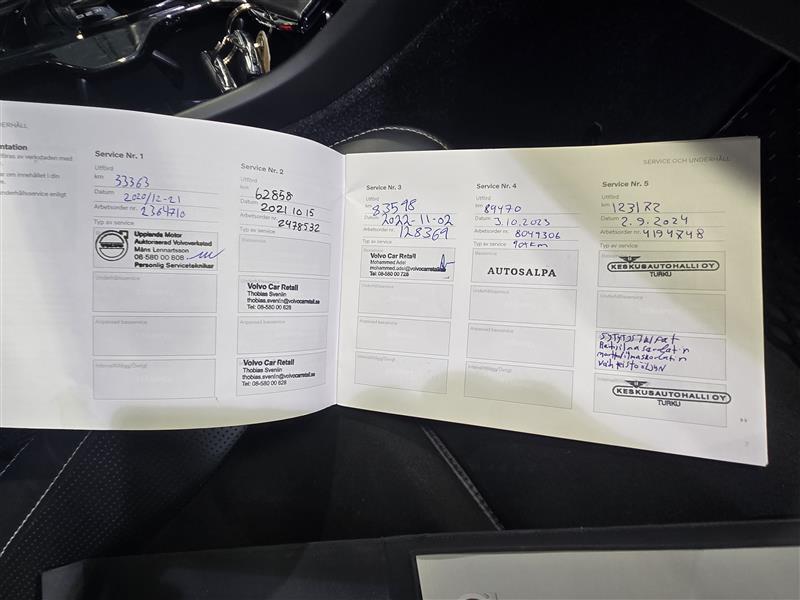 SERVICE OCH UNDERHÅLL
Service Nr. 1
Utförd
km 33363
Datum 2020/12-21
Arbetsorder nr. 2364710
Typ av service
Upplands Motor
Auktoriserad Volvoverkstad
Måns Lennartsson
08-580 00 808
Personlig Servicetekniker
Underhållsservice
Anpassad basservice
Internat tillägg/Övrigt
Service Nr. 2
Utförd
km 62858
Datum 2021 10 15
Arbetsorder nr. 2478532
Typ av service
Basservice
Volvo Car Retail
Thobias Svenlin
thobias.svenlin@volvocarretail.se
Tel: 08-580 00 628
Anpassad basservice
Volvo Car Retail
Thobias Svenlin
thobias.svenlin@volvocarretail.se
Tel: 08-580 00 628
Service Nr. 3
Utförd
km 83598
Datum 2022-11-02
Arbetsorder nr. 128369
Typ av service
Volvo Car Retail
Mohammed Adel
Tel: 08-580 00 728
Underhållsservice
Anpassad basservice
Service Nr. 4
Utförd
km 89470
Datum 3.10.2023
Arbetsorder nr. 8049306
Typ av service
Basservice
AUTOSALPA
Underhållsservice
Anpassad basservice
Service Nr. 5
Utförd
km 123172
Datum 2.9.2024
Arbetsorder nr. 4194748
Typ av service
KESKUSAUTOHALLI OY
TURKU
Underhållsservice
KESKUSAUTOHALLI OY
TURKU
7